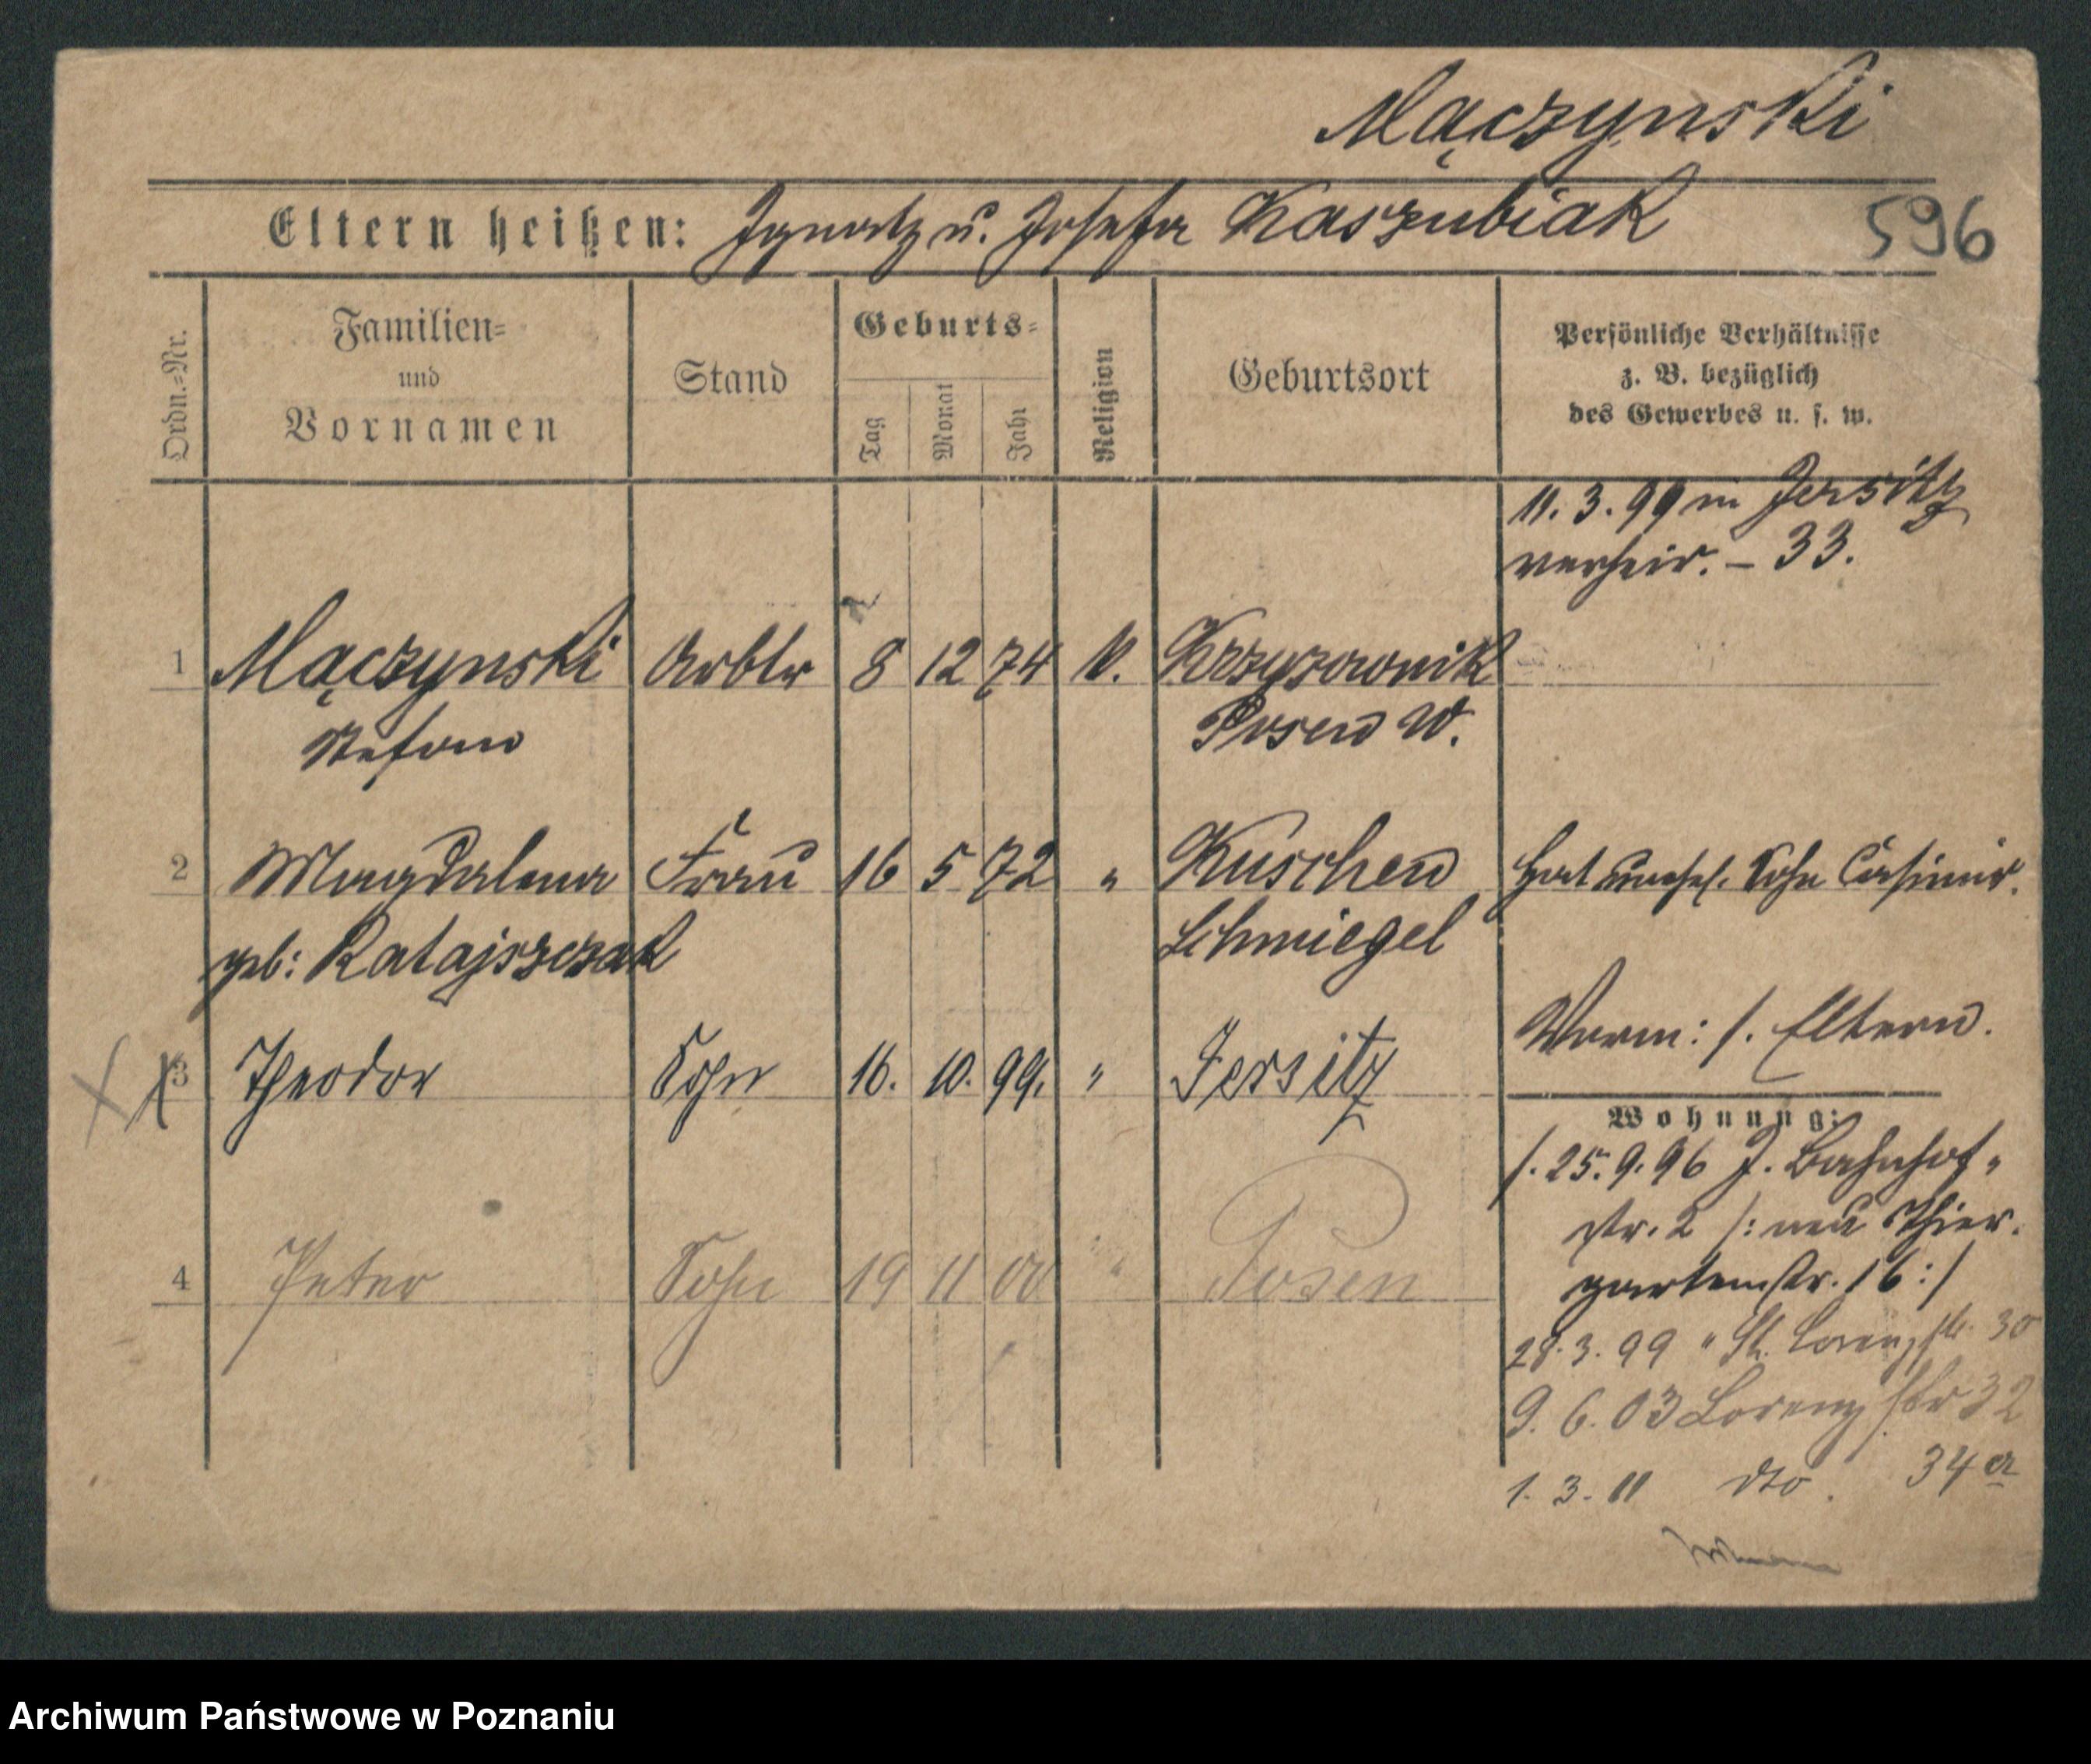 Mączynski
Eltern heißen: Ignatz u. Josefa Kaszubiak
596
Ordn.=Nr.
Familien=
und
Vornamen
Stand
Geburts=
Tag
Monat
Jahr
Religion
Geburtsort
Persönliche Verhältnisse
z. B. bezüglich
des Gewerbes u. s. w.
11. 3. 99 in Jersitz
verheir. – 33.
1 Mączynski Arbtr 8 12 74 K. Krzyzownik
Stefan Posen W.
2 Magdalena Frau 16 5 72 " Kuschen Hat unehel. Sohn Casimir.
geb: Ratajszczak Schmiegel
Verm: s. Eltern.
3 Theodor Sohn 16. 10. 99. " Jersitz
Wohnung:
s. 25. 9. 96 J. Bahnhof-
str. 2 /: neu Thier-
gartenstr. 16 :/
4 Peter Sohn 19 11 00 " Posen
28. 3. 99 " St. Lorenzstr. 30
9. 6. 03 Lorenzstr 32
1. 3. 11 dto. 34a
Archiwum Państwowe w Poznaniu